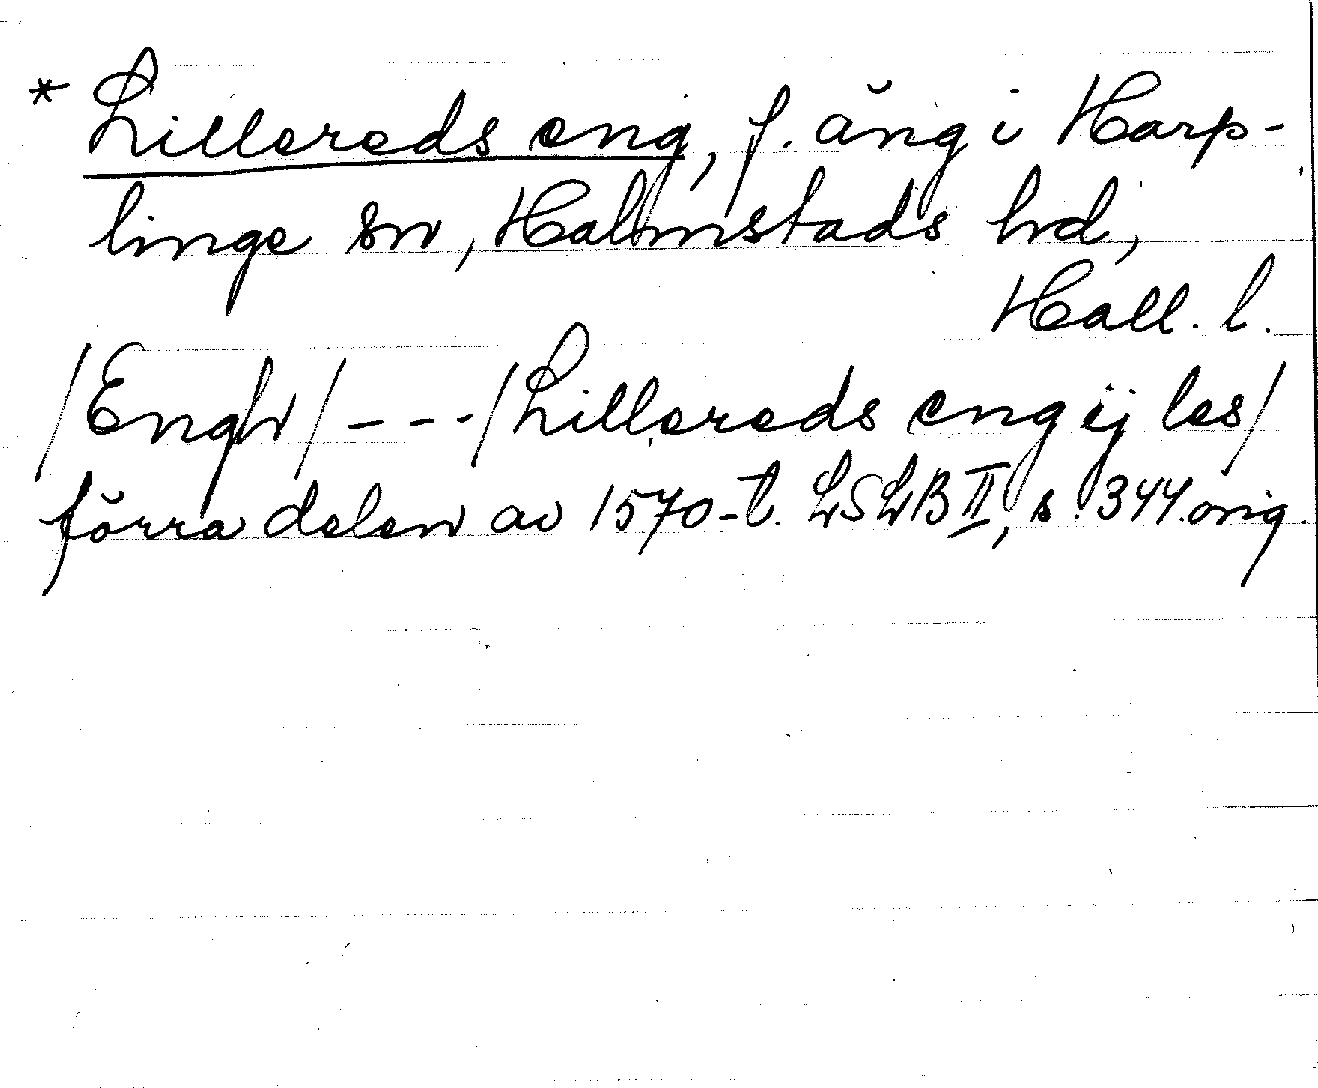 * Lillereds eng, f. äng i Harp-
linge sn, Halmstads hd,
Hall. l.
/Engh/ - - - /Lillereds eng ij les/
förra delen av 1570-t. LSLB II, s. 344 orig.